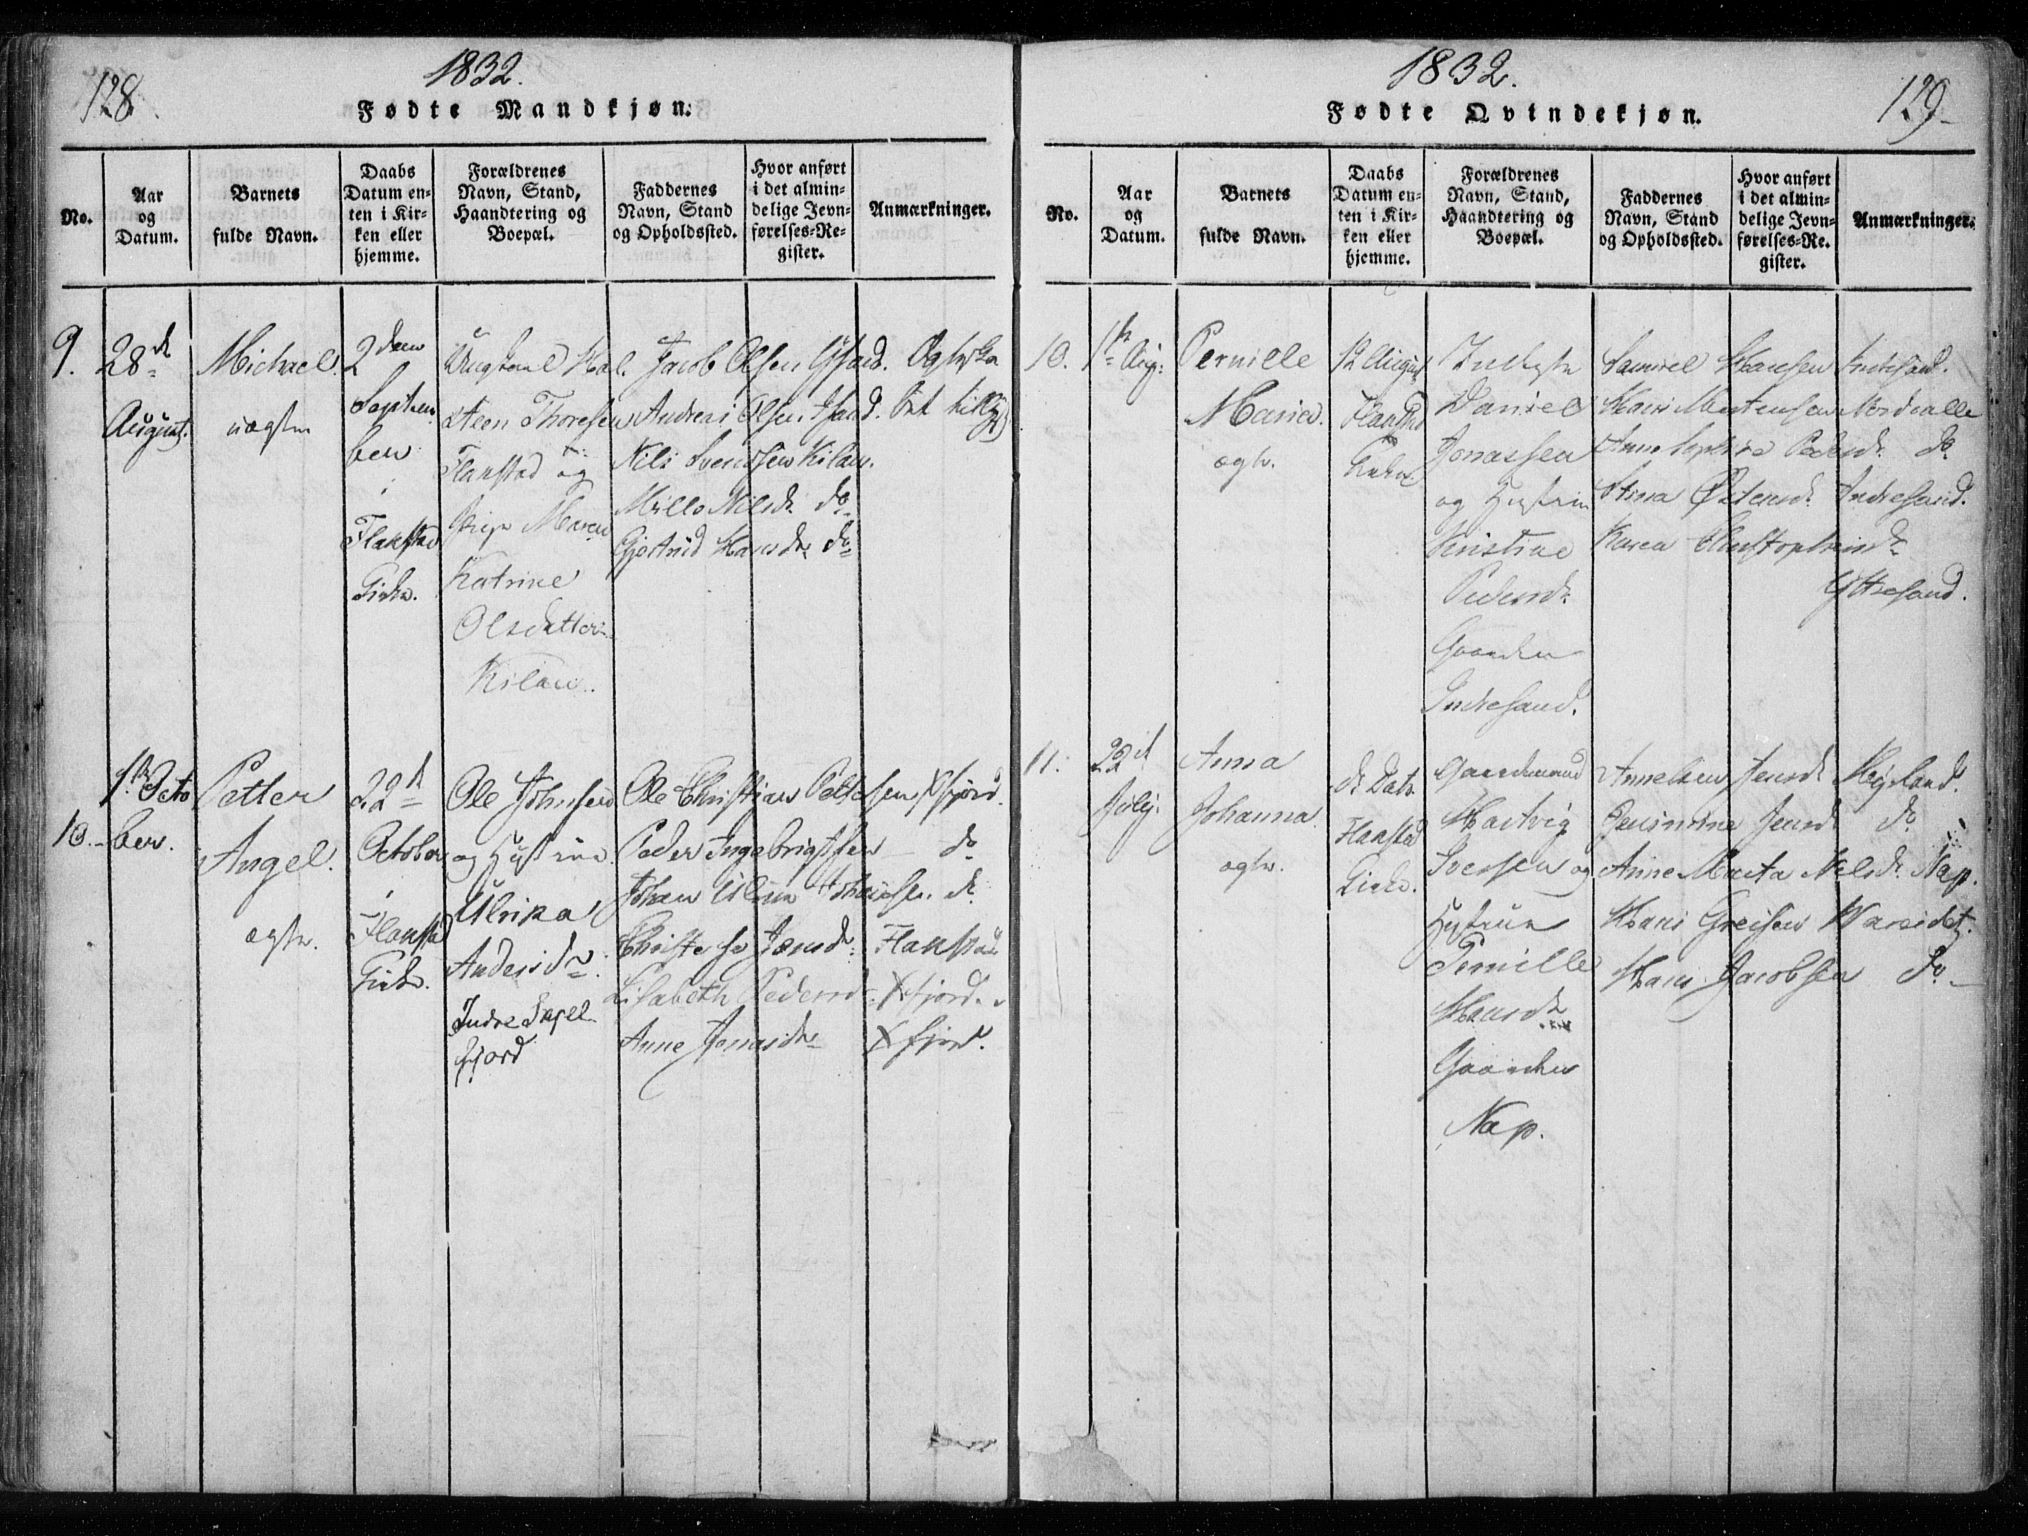 128.
1832.
Fødte Mandkjøn.
No.
Aar
og
Datum.
Barnets
fulde Navn.
Daabs
Datum en-
ten i Kir-
ken eller
hjemme.
Forældrenes
Navn, Stand,
Haandtering og
Boepæl.
Faddernes
Navn, Stand
og Opholdssted.
Hvor anført
i det almin-
delige Jevn-
førelses-Re-
gister.
Anmærkninger.
9.
28de
August.
Michael.
uægte
2den
Septem
ber
i
Flakstad
Kirke.
Ungkarl
Steen Thoresen
Flakstad og
Pige Maren
Katrine
Olsdatter
Kilan.
Jacob Olsen
Andreas Olsen
Nils Svendsen Kilan.
Mille Nilsdr. do
Gjertrud Hansdr. do
10.
1te Octo
ber.
Petter
Angel.
ægte.
22d
October
i
Flakstad
Kirke.
Ole Johnsen
og Hustrue
Ulrika
Andersdr.
Indre Skjel
fjord
Ole Christian Pettersen Xfjord.
Peder Ingebrigtsen do
Johan Johansen do
Jensdr. Flakstad
Lisabeth Pedersdr. Xfjord.
Anne Jonasdr. Xfjord.
1832.
129.
Fødte Qvindekjøn.
No.
Aar
og
Datum.
Barnets
fulde Navn.
Daabs
Datum en-
ten i Kir-
ken eller
hjemme.
Forældrenes
Navn, Stand,
Haandtering og
Boepæl.
Faddernes
Navn, Stand
og Opholdssted.
Hvor anført
i det almin-
delige Jevn-
førelses-Re-
gister.
Anmærkninger.
10.
1te Aug:
Pernille
Maria.
ægte.
12 August
Flakstad
Kirke.
Daniel
Jonassen
og Hustrue
Kristine
Pedersdr.
Gaarden
Indresand.
Samuel Hansen Indresand.
Hans Mortensen
Anne Sophie Pedersdr. do
Stina Indresand.
Karen Christophersdr.
Yttresand.
11.
22d
July.
Anna
Johanna
ægte.
d. Dato
Flakstad
Kirke.
Gaardmand
Hartvig
Iversen og
Hustrue
Pernille
Hansdr.
Gaarden
Nap.
Jensdr.
Jensdr. do
Anne Marta Nilsdr. Nap.
Hans
Hans Jacobsen do